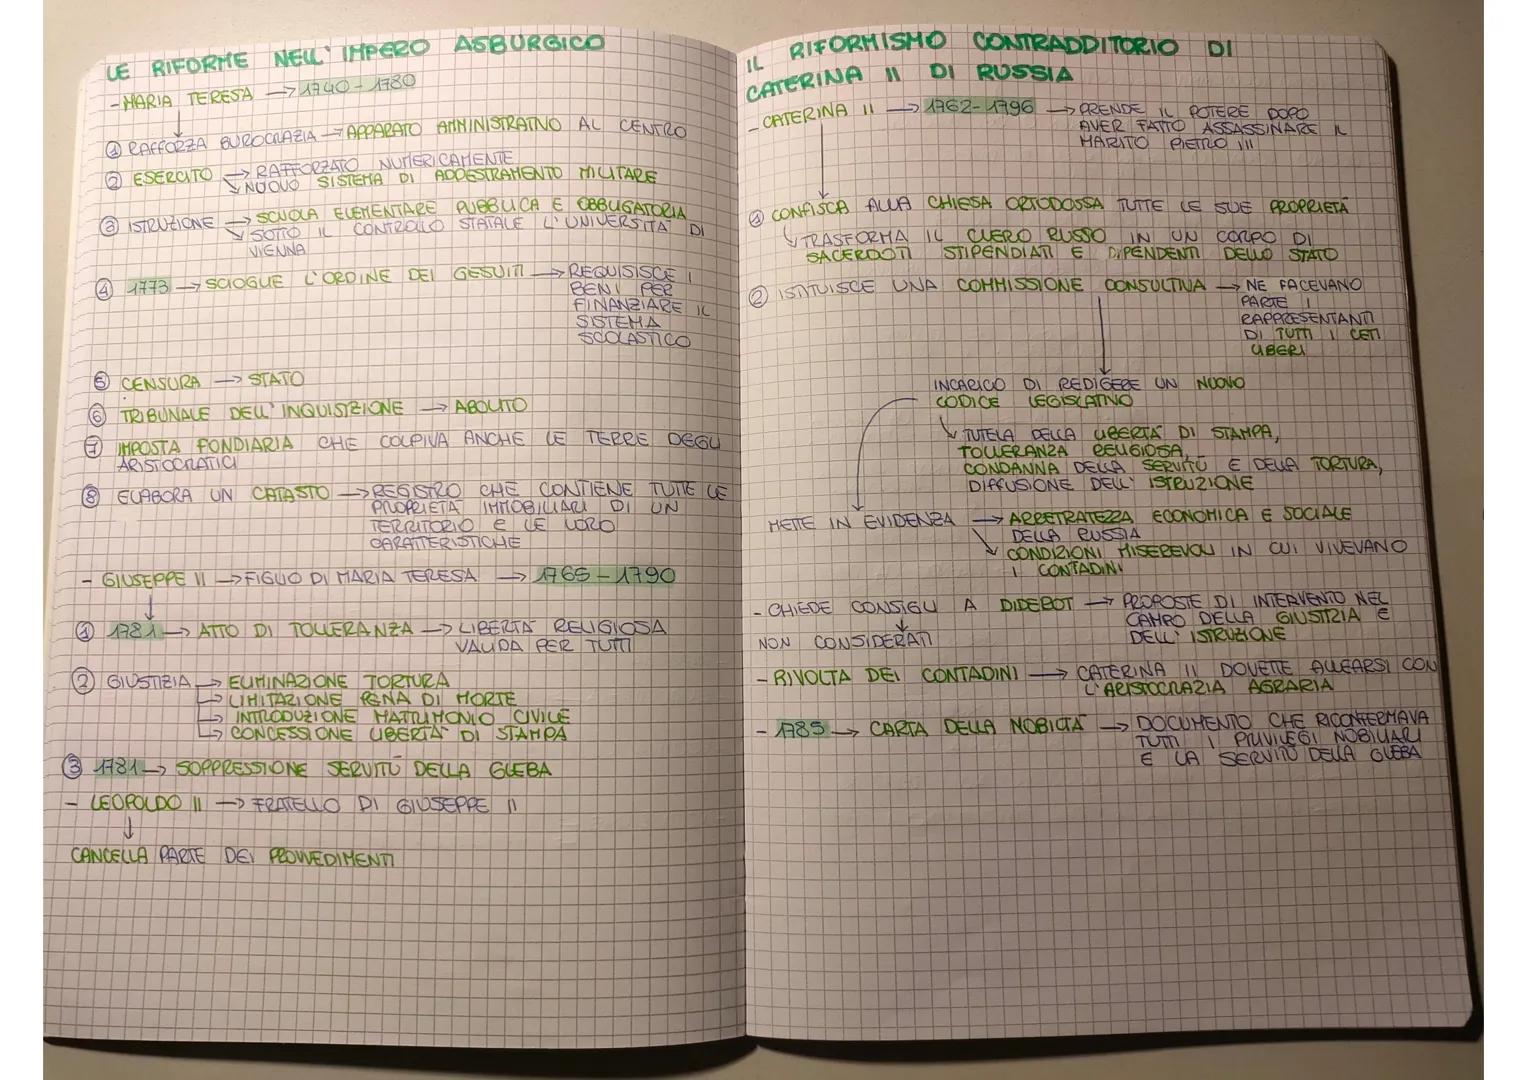 LE RIFORME NELL' IMPERO ASBURGICO
- MARIA TERESA → 1740-1780
↓
① RAFFORZA BUROCRAZIA → APPARATO AMMINISTRATIVO AL CENTRO
② ESERCITO → RAFFORZATO NUMERICAMENTE
↘ NUOVO SISTEMA DI ADDESTRAMENTO MILITARE
③ ISTRUZIONE → SCUOLA ELEMENTARE PUBBLICA E OBBLIGATORIA
↘ SOTTO IL CONTROLLO STATALE L'UNIVERSITÀ DI
VIENNA
④ 1773 → SCIOGLIE L'ORDINE DEI GESUITI → REQUISISCE I
BENI PER
FINANZIARE IL
SISTEMA
SCOLASTICO
⑤ CENSURA → STATO
⑥ TRIBUNALE DELL'INQUISIZIONE → ABOLITO
⑦ IMPOSTA FONDIARIA CHE COLPIVA ANCHE LE TERRE DEGLI
ARISTOCRATICI
⑧ ELABORA UN CATASTO → REGISTRO CHE CONTIENE TUTTE LE
PROPRIETÀ IMMOBILIARI DI UN
TERRITORIO E LE LORO
CARATTERISTICHE
- GIUSEPPE II → FIGLIO DI MARIA TERESA → 1765-1790
↓
① 1781 → ATTO DI TOLLERANZA → LIBERTÀ RELIGIOSA
VALIDA PER TUTTI
② GIUSTIZIA → ELIMINAZIONE TORTURA
↳ LIMITAZIONE PENA DI MORTE
↳ INTRODUZIONE MATRIMONIO CIVILE
↳ CONCESSIONE LIBERTÀ DI STAMPA
③ 1781 → SOPPRESSIONE SERVITÙ DELLA GLEBA
- LEOPOLDO II → FRATELLO DI GIUSEPPE II
↓
CANCELLA PARTE DEI PROVVEDIMENTI
IL RIFORMISMO CONTRADDITORIO DI
CATERINA II DI RUSSIA
- CATERINA II → 1762-1796 → PRENDE IL POTERE DOPO
AVER FATTO ASSASSINARE IL
MARITO PIETRO III
① CONFISCA ALLA CHIESA ORTODOSSA TUTTE LE SUE PROPRIETÀ
↳ TRASFORMA IL CLERO RUSSO IN UN CORPO DI
SACERDOTI STIPENDIATI E DIPENDENTI DELLO STATO
② ISTITUISCE UNA COMMISSIONE CONSULTIVA → NE FACEVANO
PARTE I
RAPPRESENTANTI
DI TUTTI I CETI
LIBERI
INCARICO DI REDIGERE UN NUOVO
CODICE LEGISLATIVO
↳ TUTELA DELLA LIBERTÀ DI STAMPA,
TOLLERANZA RELIGIOSA,
CONDANNA DELLA SERVITÙ E DELLA TORTURA,
DIFFUSIONE DELL'ISTRUZIONE
METTE IN EVIDENZA → ARRETRATEZZA ECONOMICA E SOCIALE
DELLA RUSSIA
↘ CONDIZIONI MISEREVOLI IN CUI VIVEVANO
I CONTADINI
- CHIEDE CONSIGLI A DIDEROT → PROPOSTE DI INTERVENTO NEL
CAMPO DELLA GIUSTIZIA E
DELL'ISTRUZIONE
NON CONSIDERATI
- RIVOLTA DEI CONTADINI → CATERINA II DOVETTE ALLEARSI CON
L'ARISTOCRAZIA AGRARIA
- 1785 → CARTA DELLA NOBILTÀ → DOCUMENTO CHE RICONFERMAVA
TUTTI I PRIVILEGI NOBILIARI
E LA SERVITÙ DELLA GLEBA